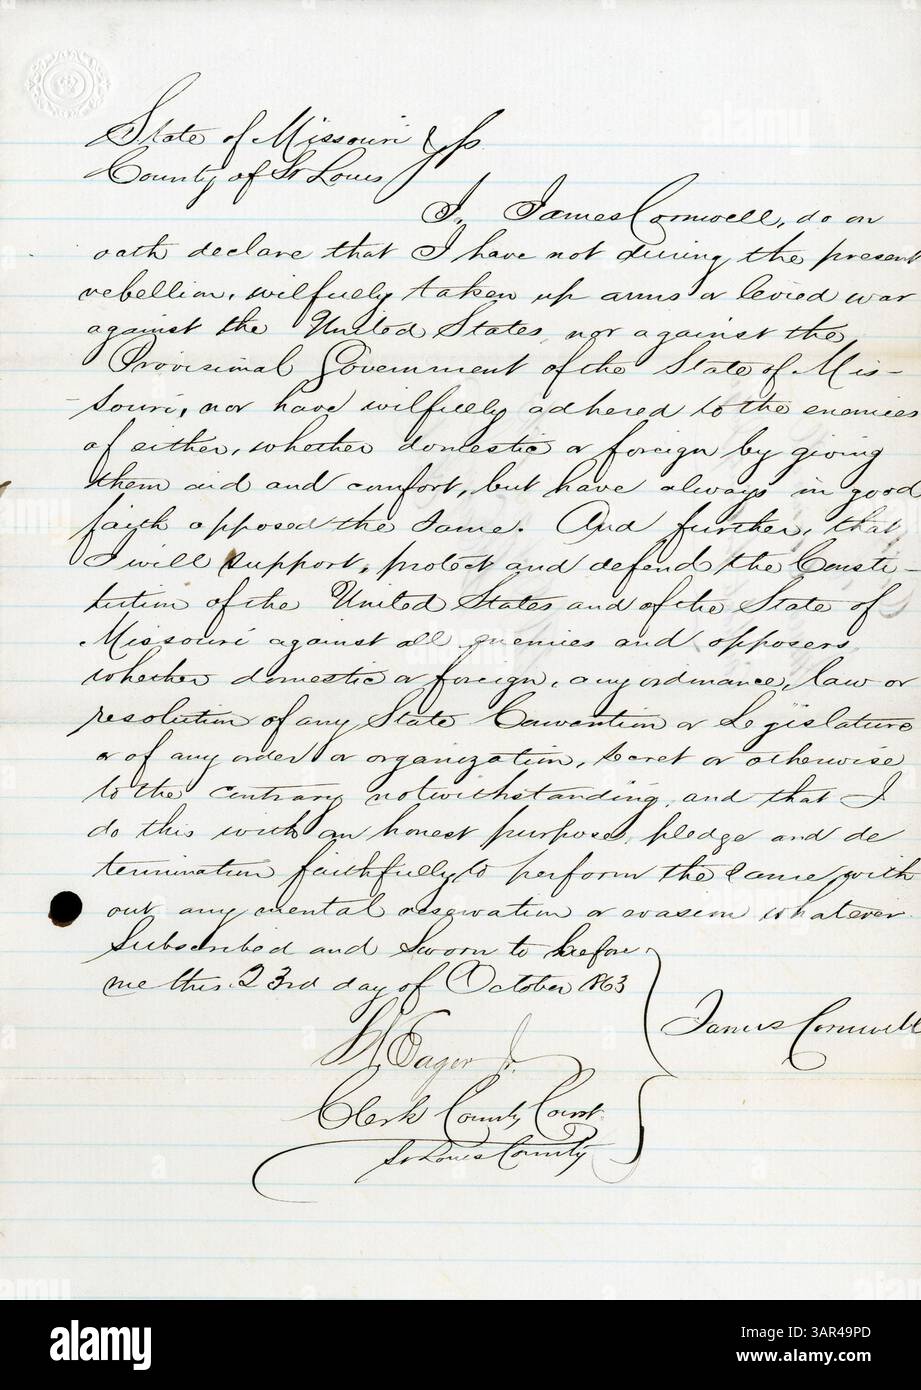 State of Missouri } ss
County of St Louis
I, James Cornwell, do on
oath declare that I have not during the present
rebellion, wilfully taken up arms or levied war
against the United States, nor against the
Provisional Government of the State of Mis-
-souri, nor have wilfully adhered to the enemies
of either, whether domestic or foreign by giving
them aid and comfort, but have always in good
faith opposed the same. And further, that
I will support, protect and defend the Consti-
tution of the United States and of the State of
Missouri against all enemies and opposers
whether domestic or foreign, any ordinance, law or
resolution of any State Convention or Legislature
or of any order or organization, secret or otherwise
to the contrary notwithstanding, and that I
do this with an honest purpose, pledge and de
termination faithfully to perform the same with
out any mental reservation or evasion whatever.
Subscribed and Sworn to before
me this 23rd day of October 1863
James Cornwell
Eager Jr.
Clerk County Court
St Louis County
alamy
Image ID: 3AR49PD
www.alamy.com